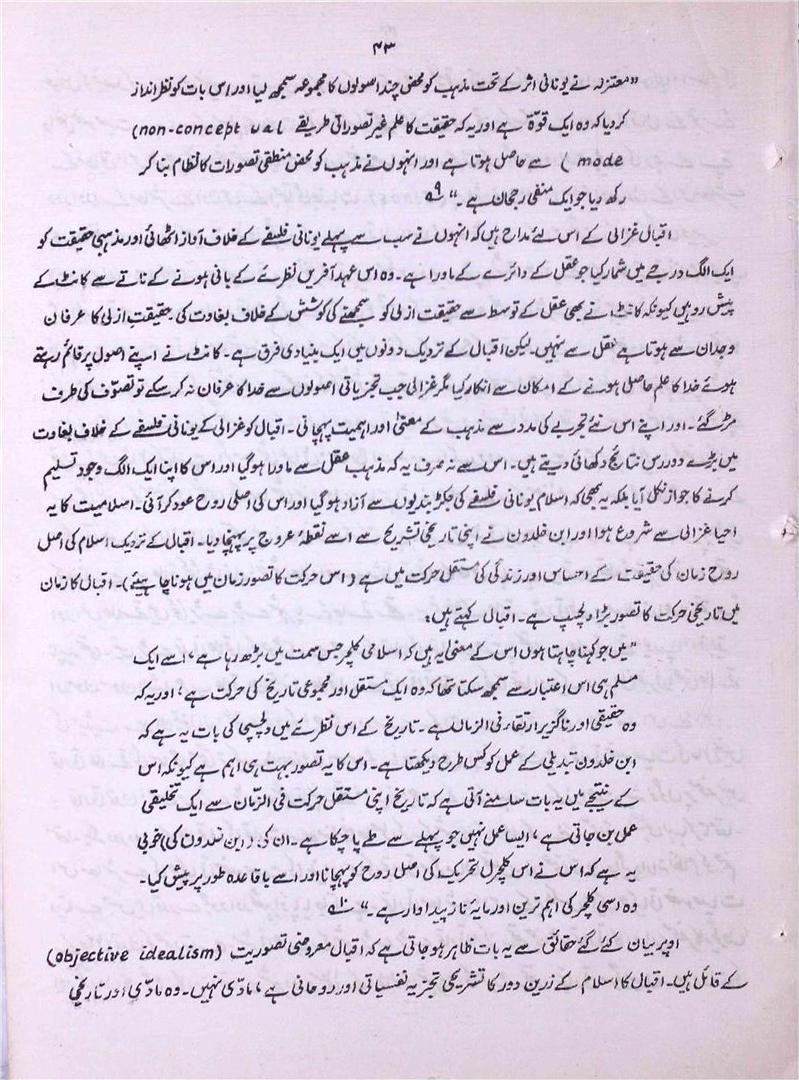 ۴۳
”معتزلہ نے یونانی اثر کے تحت مذہب کو محض چند اصولوں کا مجموعہ سمجھ لیا اور اس بات کو نظر انداز
کر دیا کہ وہ ایک قوۃ ہے اور یہ کہ حقیقت کا علم غیر تصوراتی طریقے (non-conceptual
mode) سے حاصل ہوتا ہے اور انہوں نے مذہب کو محض منطقی تصورات کا نظام بنا کر
رکھ دیا جو ایک منفی رجحان ہے۔“ ۹؎
اقبال غزالی کے اس لئے مداح ہیں کہ انہوں نے سب سے پہلے یونانی فلسفے کے خلاف آواز اٹھائی اور مذہبی حقیقت کو
ایک الگ درجے میں شمار کیا جو عقل کے دائرے کے ماورا ہے۔ وہ اس عہد آفریں نظرئے کے بانی ہونے کے ناتے سے کانٹ کے
پیش رو ہیں کیونکہ کانٹ نے بھی عقل کے توسط سے حقیقت ازلی کو سمجھنے کی کوشش کے خلاف بغاوت کی۔ حقیقتِ ازلی کا عرفان
وجدان سے ہوتا ہے عقل سے نہیں۔ لیکن اقبال کے نزدیک دونوں میں ایک بنیادی فرق ہے۔ کانٹ نے اپنے اصول پر قائم رہتے
ہوئے خدا کا علم حاصل ہونے کے امکان سے انکار کیا مگر غزالی جب تجزیاتی اصولوں سے خدا کا عرفان نہ کر سکے تو تصوّف کی طرف
مڑ گئے۔ اور اپنے اس نئے تجربے کی مدد سے مذہب کے معنیٰ اور اہمیت پہچانی۔ اقبال کو غزالی کے یونانی فلسفے کے خلاف بغاوت
میں بڑے دور رس نتائج دکھائی دیتے ہیں۔ اس سے نہ صرف یہ کہ مذہب عقل سے ماورا ہو گیا اور اس کا اپنا ایک الگ وجود تسلیم
کرنے کا جواز نکل آیا بلکہ یہ بھی کہ اسلام یونانی فلسفے کی جکڑ بندیوں سے آزاد ہو گیا اور اس کی اصلی روح عود کر آئی۔ اسلامیت کا یہ
احیا غزالی سے شروع ہوا اور ابن خلدون نے اپنی تاریخی تشریح سے اسے نقطۂ عروج پر پہنچا دیا۔ اقبال کے نزدیک اسلام کی اصل
روح زمان کی حقیقت کے احساس اور زندگی کی مستقل حرکت میں ہے (اس حرکت کا تصور زمان میں ہونا چاہیئے)۔ اقبال کا زمان
میں تاریخی حرکت کا تصور بڑا دلچسپ ہے۔ اقبال کہتے ہیں:
”میں جو کہنا چاہتا ہوں اس کے معنیٰ یہ ہیں کہ اسلامی کلچر جس سمت میں بڑھ رہا ہے، اسے ایک
مسلم ہی اس اعتبار سے سمجھ سکتا تھا کہ وہ ایک مستقل اور مجموعی تاریخ کی حرکت ہے؛ اور یہ کہ
وہ حقیقی اور ناگزیر ارتقا فی الزماں ہے۔ تاریخ کے اس نظرئے میں دلچسپی کی بات یہ ہے کہ
ابن خلدون تبدیلی کے عمل کو کس طرح دیکھتا ہے۔ اس کا یہ تصور بہت ہی اہم ہے کیونکہ اس
کے نتیجے میں یہ بات سامنے آتی ہے کہ تاریخ اپنی مستقل حرکت فی الزّمان سے ایک تخلیقی
عمل بن جاتی ہے، ایسا عمل نہیں جو پہلے سے طے پا چکا ہے۔ ان کی (ابن خلدون کی) خوبی
یہ ہے کہ اس نے اس کلچرل تحریک کی اصل روح کو پہچانا اور اسے باقاعدہ طور پر پیش کیا۔
وہ اسی کلچر کی اہم ترین اور مایۂ ناز پیداوار ہے۔“ ۱۰؎
اوپر بیان کئے گئے حقائق سے یہ بات ظاہر ہو جاتی ہے کہ اقبال معروضی تصوریت (objective idealism)
کے قائل ہیں۔ اقبال کا اسلام کے زریں دور کا تشریحی تجزیہ نفسیاتی اور روحانی ہے، مادّی نہیں۔ وہ مادّی اور تاریخی